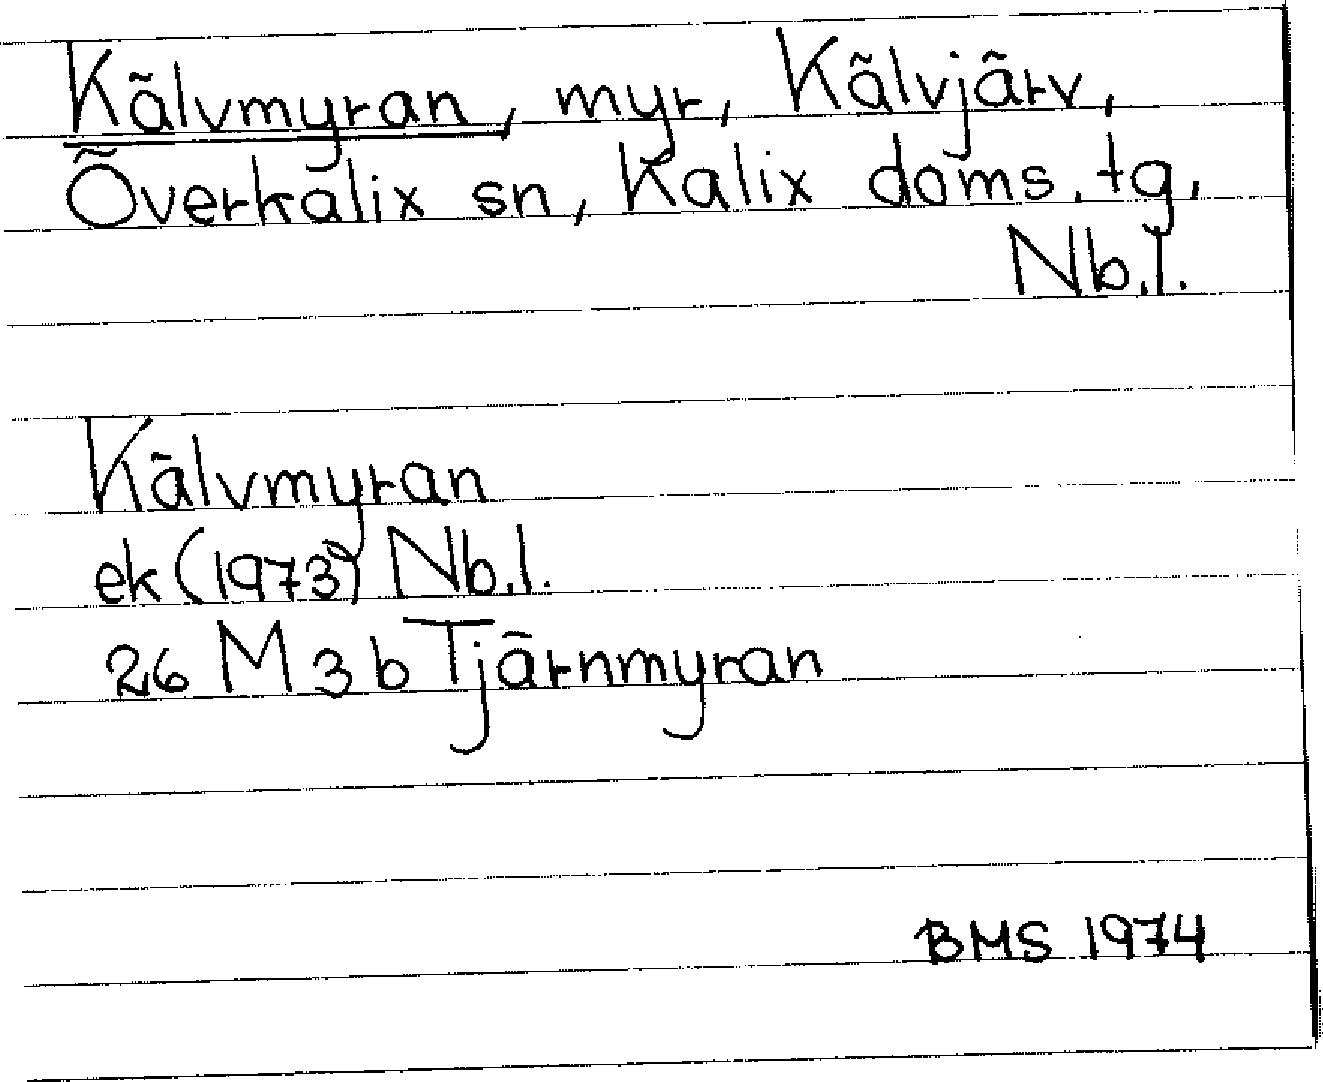 Kälvmyran, myr, Kälvjärv,
Överkalix sn, Kalix doms.tg,
Nb.l.
Kälvmyran
ek (1973) Nb.l.
26 M 3 b Tjärnmyran
BMS 1974